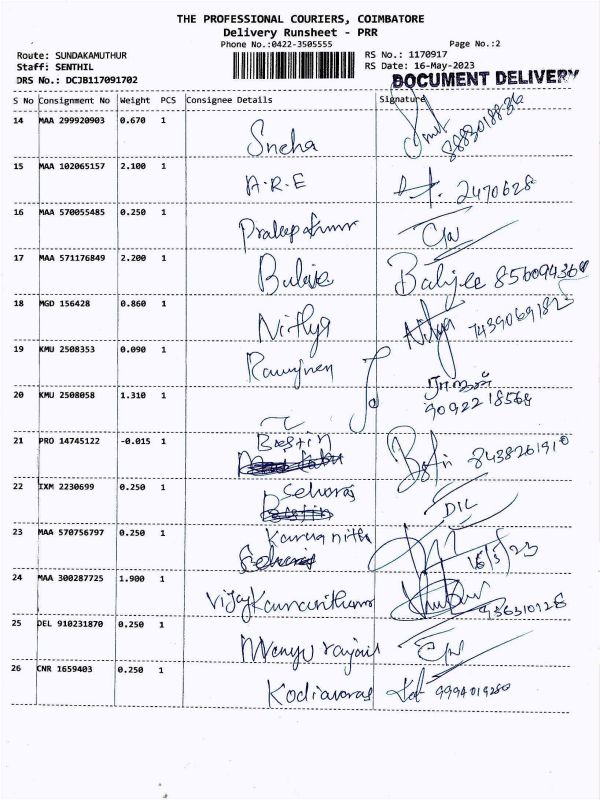 THE PROFESSIONAL COURIERS, COIMBATORE
Delivery Runsheet - PRR
Phone No.:0422-3505555 Page No.:2
Route: SUNDAKAMUTHUR RS No.: 1170917
Staff: SENTHIL RS Date: 16-May-2023
DRS No.: DCJB117091702 DOCUMENT DELIVERY
S No Consignment No Weight PCS Consignee Details Signature
14 MAA 299920903 0.670 1 Sneha
15 MAA 102065157 2.100 1 A.R.E 2470628
16 MAA 570055485 0.250 1
17 MAA 571176849 2.200 1
18 MGD 156428 0.860 1 Nithya Nitya 7439069182
19 KMU 2508353 0.090 1
20 KMU 2508058 1.310 1 9092218568
21 PRO 14745122 -0.015 1 Bestin 8438261910
22 IXM 2230699 0.250 1 Selvaraj
23 MAA 570756797 0.250 1 16/5/23
24 MAA 300287725 1.900 1 936310128
25 DEL 910231870 0.250 1
26 CNR 1659403 0.250 1 9994019280